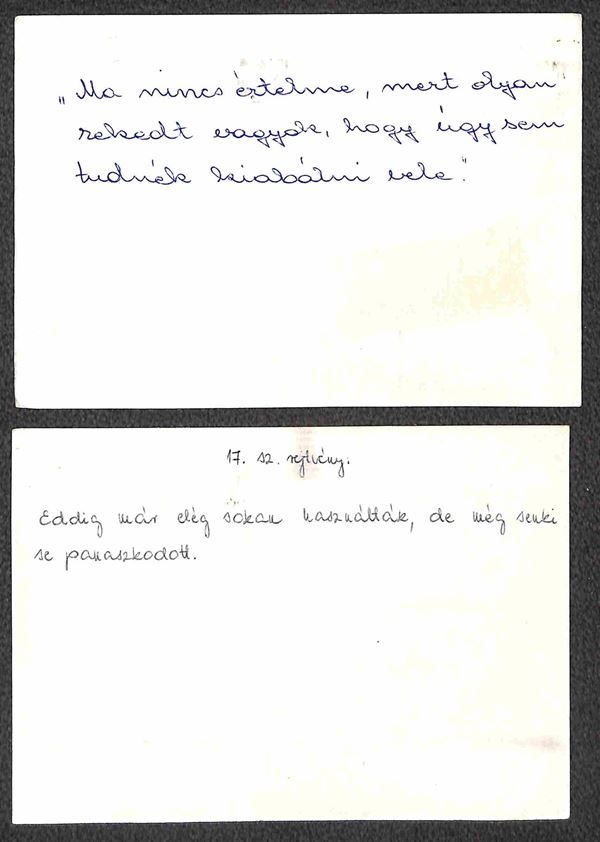 „Ma nincs értelme, mert olyan
rekedt vagyok, hogy úgy sem
tudnék kiabálni vele."
17. sz. rejtvény.
Eddig már elég sokan használták, de még senki
se panaszkodott.